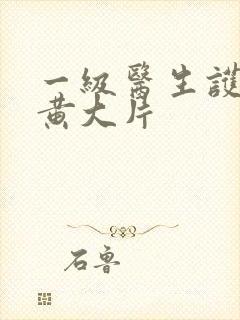 一級醫生護
黄大片
石魯